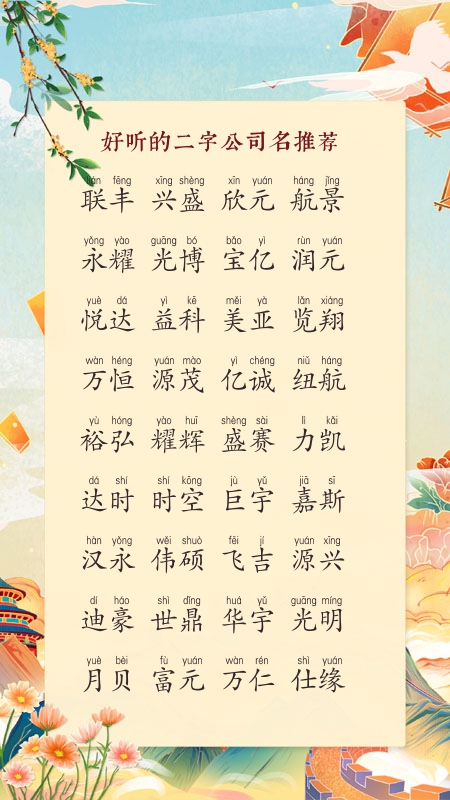 好听的二字公司名推荐
lián fēng xīng shèng xīn yuán háng jǐng
联丰 兴盛 欣元 航景
yǒng yào guāng bó bǎo yì rùn yuán
永耀 光博 宝亿 润元
yuè dá yì kē měi yà lǎn xiáng
悦达 益科 美亚 览翔
wàn héng yuán mào yì chéng niǔ háng
万恒 源茂 亿诚 纽航
yù hóng yào huī shèng sài lì kǎi
裕弘 耀辉 盛赛 力凯
dá shí shí kōng jù yǔ jiā sī
达时 时空 巨宇 嘉斯
hàn yǒng wěi shuò fēi jí yuán xīng
汉永 伟硕 飞吉 源兴
dí háo shì dǐng huá yǔ guāng míng
迪豪 世鼎 华宇 光明
yuè bèi fù yuán wàn rén shì yuán
月贝 富元 万仁 仕缘